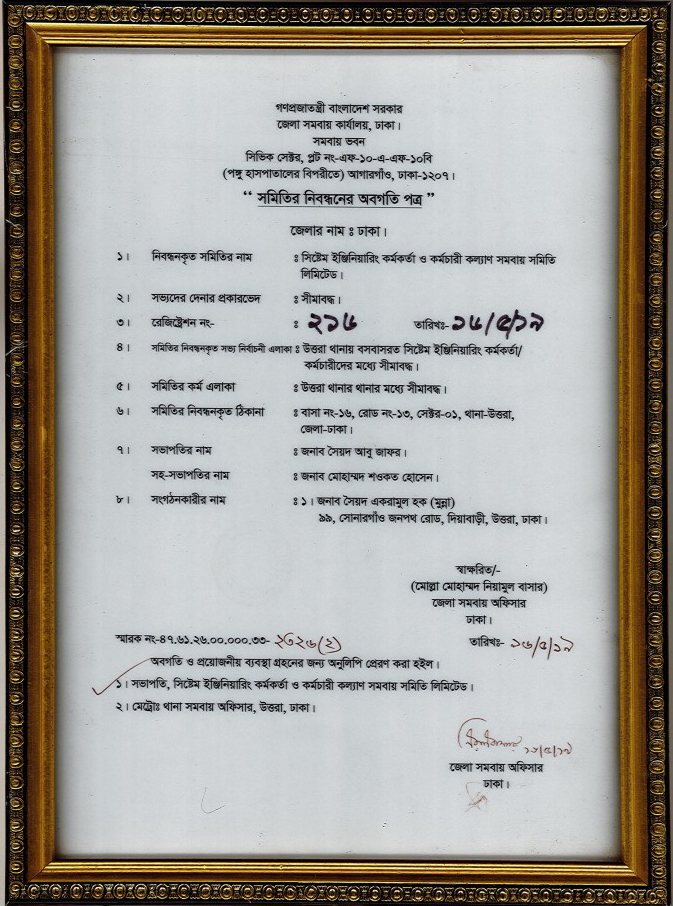 গণপ্রজাতন্ত্রী বাংলাদেশ সরকার
জেলা সমবায় কার্যালয়, ঢাকা।
সমবায় ভবন
সিভিক সেক্টর, প্লট নং-এফ-১০-এ-এফ-১০বি
(পঙ্গু হাসপাতালের বিপরীতে) আগারগাঁও, ঢাকা-১২০৭।
“ সমিতির নিবন্ধনের অবগতি পত্র ”
জেলার নাম ঃ ঢাকা।
১। নিবন্ধনকৃত সমিতির নাম ঃ সিষ্টেম ইঞ্জিনিয়ারিং কর্মকর্তা ও কর্মচারী কল্যাণ সমবায় সমিতি
লিমিটেড।
২। সভ্যদের দেনার প্রকারভেদ ঃ সীমাবদ্ধ।
৩। রেজিষ্ট্রেশন নং- ঃ ২১৬ তারিখঃ-১৬/৫/১৯
৪। সমিতির নিবন্ধনকৃত সভ্য নির্বাচনী এলাকা ঃ উত্তরা থানায় বসবাসরত সিষ্টেম ইঞ্জিনিয়ারিং কর্মকর্তা/
কর্মচারীদের মধ্যে সীমাবদ্ধ।
৫। সমিতির কর্ম এলাকা ঃ উত্তরা থানার থানার মধ্যে সীমাবদ্ধ।
৬। সমিতির নিবন্ধনকৃত ঠিকানা ঃ বাসা নং-১৬, রোড নং-১৩, সেক্টর-০১, থানা-উত্তরা,
জেলা-ঢাকা।
৭। সভাপতির নাম ঃ জনাব সৈয়দ আবু জাফর।
সহ-সভাপতির নাম ঃ জনাব মোহাম্মদ শওকত হোসেন।
৮। সংগঠনকারীর নাম ঃ ১। জনাব সৈয়দ একরামুল হক (মুন্না)
৯৯, সোনারগাঁও জনপথ রোড, দিয়াবাড়ী, উত্তরা, ঢাকা।
স্বাক্ষরিত/-
(মোল্লা মোহাম্মদ নিয়ামুল বাসার)
জেলা সমবায় অফিসার
ঢাকা।
স্মারক নং-৪৭.৬১.২৬.০০.০০০.৩৩- ২৩২৬(২) তারিখঃ- ১৬/৫/১৯
অবগতি ও প্রয়োজনীয় ব্যবস্থা গ্রহনের জন্য অনুলিপি প্রেরণ করা হইল।
১। সভাপতি, সিষ্টেম ইঞ্জিনিয়ারিং কর্মকর্তা ও কর্মচারী কল্যাণ সমবায় সমিতি লিমিটেড।
২। মেট্রোঃ থানা সমবায় অফিসার, উত্তরা, ঢাকা।
১৬/৫/১৯
জেলা সমবায় অফিসার
ঢাকা।